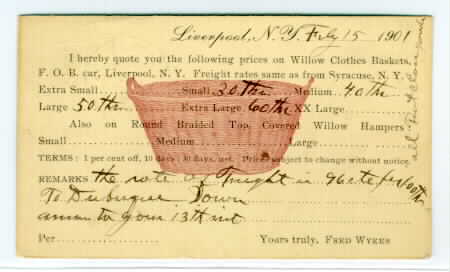 Liverpool, N. Y. July 15 1901
I hereby quote you the following prices on Willow Clothes Baskets,
F. O. B. car, Liverpool, N. Y. Freight rates same as from Syracuse, N. Y.
Extra Small Small 30 Medium 40
Large 50 Extra Large 60 XX Large
Also on Round Braided Top Covered Willow Hampers
Small Medium Large
TERMS: 1 per cent off, 10 days; 30 days, net. Prices subject to change without notice.
REMARKS the rate of Freight is 96cts per 100
To Dubuque Iowa
answer to your 13th inst
Per Yours truly, FRED WYKER
all